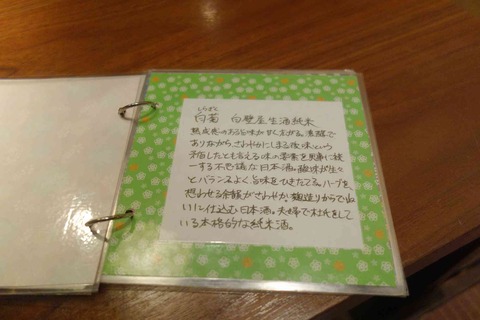 しらぎく
白菊 白壁屋生酒純米
熟成光のある旨味が甘く広がる。濃醇で
ありながら、さわやかにしまる後味という
矛盾したとも言える味の要素を見事に統
一する不思議な日本酒。酸味が生々
とバランスよく、旨味をひきたてる。ハーブを
想わせる余韻がさわやか。麹造りからていね
いに仕込む日本酒。夫婦で杜氏をして
いる本格的な純米酒。